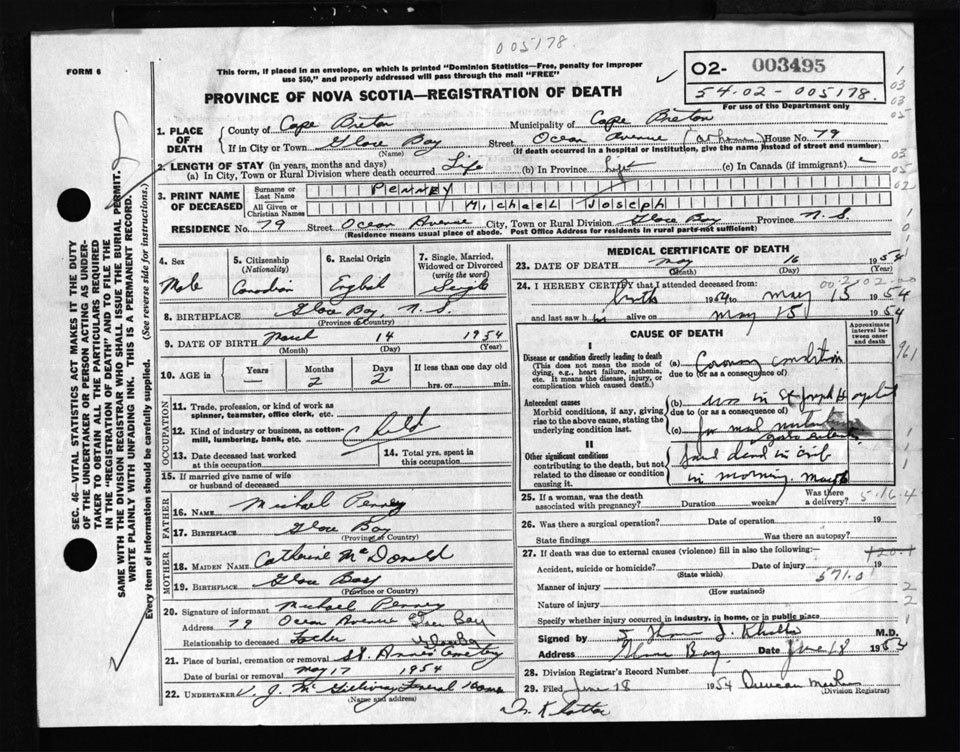 005178
FORM 6
This form, if placed in an envelope, on which is printed "Dominion Statistics—Free, penalty for improper
use $50," and properly addressed will pass through the mail "FREE"
✓ 02- 003495
54-02-005178.
For use of the Department only
PROVINCE OF NOVA SCOTIA—REGISTRATION OF DEATH
1. PLACE OF DEATH
County of Cape Breton Municipality of Cape Breton
If in City or Town Glace Bay (Name) Street Ocean Avenue (at home) House No. 79
(If death occurred in a hospital or institution, give the name instead of street and number)
2. LENGTH OF STAY (in years, months and days)
(a) In City, Town or Rural Division where death occurred Life (b) In Province Life (c) In Canada (if immigrant)
3. PRINT NAME OF DECEASED
Surname or Last Name PENNEY
All Given or Christian Names MICHAEL JOSEPH
RESIDENCE No. 79 Street Ocean Avenue City, Town or Rural Division Glace Bay Province N.S.
(Residence means usual place of abode. Post Office Address for residents in rural parts not sufficient)
4. Sex Male
5. Citizenship (Nationality) Canadian
6. Racial Origin English
7. Single, Married, Widowed or Divorced (write the word) Single
8. BIRTHPLACE Glace Bay, N.S.
(Province or Country)
9. DATE OF BIRTH March 14 1954
(Month) (Day) (Year)
10. AGE in Years — Months 2 Days 2 If less than one day old
hrs. or min.
OCCUPATION
11. Trade, profession, or kind of work as
spinner, teamster, office clerk, etc.
12. Kind of industry or business, as cotton-
mill, lumbering, bank, etc. Child
13. Date deceased last worked
at this occupation
14. Total yrs. spent in
this occupation
15. If married give name of wife
or husband of deceased
FATHER
16. Name Michael Penney
17. Birthplace Glace Bay
(Province or Country)
MOTHER
18. Maiden Name Catherine McDonald
19. Birthplace Glace Bay
(Province or Country)
20. Signature of informant Michael Penney
Address 79 Ocean Avenue Glace Bay
Relationship to deceased Father Glace Bay
21. Place of burial, cremation or removal St. Anne's Cemetery
Date of burial or removal May 17 1954
22. Undertaker V. J. McGillivray Funeral Home
(Name and address)
MEDICAL CERTIFICATE OF DEATH
23. DATE OF DEATH May 16 1954
(Month) (Day) (Year)
24. I HEREBY CERTIFY that I attended deceased from:
birth 1954 to May 15 1954
and last saw h alive on May 15 1954
CAUSE OF DEATH
Approximate interval between onset and death
I
Disease or condition directly leading to death
(This does not mean the mode of
dying, e.g., heart failure, asthenia,
etc. It means the disease, injury, or
complication which caused death.)
(a) condition
due to (or as a consequence of)
Antecedent causes
Morbid conditions, if any, giving
rise to the above cause, stating the
underlying condition last.
(b) was in St Joseph Hospital
due to (or as a consequence of)
(c) for
II
Other significant conditions
contributing to the death, but not
related to the disease or condition
causing it.
found dead in crib
in morning, May 16
25. If a woman, was the death
associated with pregnancy? Duration weeks Was there
a delivery?
26. Was there a surgical operation? Date of operation 19
State findings Was there an autopsy?
27. If death was due to external causes (violence) fill in also the following:—
Accident, suicide or homicide? Date of injury 19
(State which) 571.0
Manner of injury
(How sustained)
Nature of injury
Specify whether injury occurred in industry, in home, or in public place
Signed by M.D.
Address Glace Bay Date June 18 1954
28. Division Registrar's Record Number
29. Filed June 18 1954 Duncan
(Division Registrar)
SEC. 46—VITAL STATISTICS ACT MAKES IT THE DUTY
OF THE UNDERTAKER OR PERSON ACTING AS UNDER-
TAKER TO OBTAIN ALL THE PARTICULARS REQUIRED
IN THE "REGISTRATION OF DEATH" AND TO FILE THE
SAME WITH THE DIVISION REGISTRAR WHO SHALL ISSUE THE BURIAL PERMIT.
WRITE PLAINLY WITH UNFADING INK. THIS IS A PERMANENT RECORD.
Every item of information should be carefully supplied. (See reverse side for instructions.)